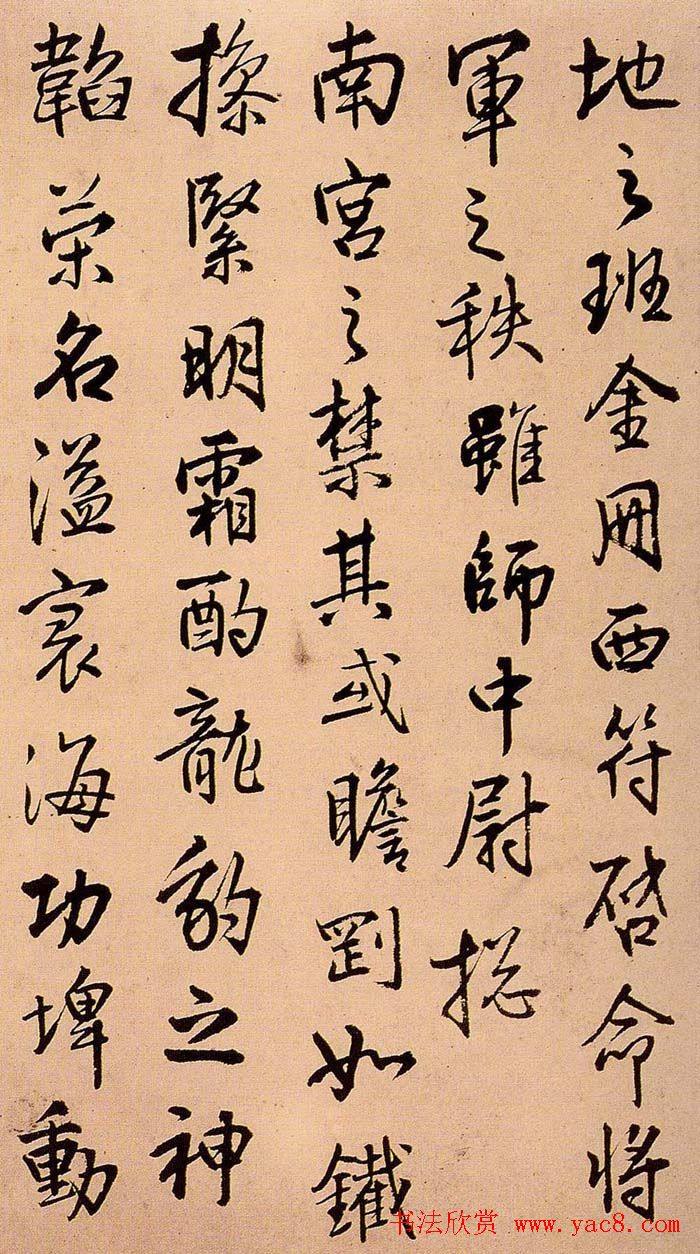 地之班金册西符启命将
軍之秩雖師中尉揔
南宫之禁其或瞻劉如鐵
操緊明霜酌龍豹之神
韜榮名溢寰海功埤動
书法欣赏 www.yac8.com